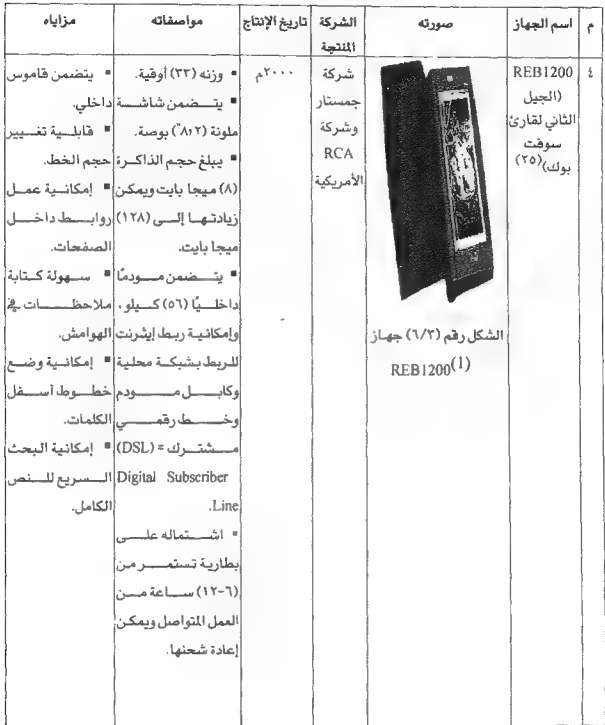 م
اسم الجهاز
صورته
الشركة
المنتجة
تاريخ الإنتاج
مواصفاته
مزاياه
٤
REB1200
(الجيل
الثاني لقارئ
سوفت
بوك)(٢٥)
الشكل رقم (٦/٣) جهاز
REB1200(1)
شركة
جمستار
وشركة
RCA
الأمريكية
٢٠٠٠م
▪ وزنه (٣٣) أوقية.
▪ يتضمن شاشة
ملونة (٨,٢") بوصة.
▪ يبلغ حجم الذاكرة
(٨) ميجا بايت ويمكن
زيادتها إلى (١٢٨)
ميجا بايت.
▪ يتضمن مودمًا
داخليًا (٥٦) كيلو،
وإمكانية ربط إيثرنت
للربط بشبكة محلية
وكابل مودم
وخط رقمي
مشترك = (DSL)
Digital Subscriber
Line.
▪ اشتماله على
بطارية تستمر من
(٦-١٢) ساعة من
العمل المتواصل ويمكن
إعادة شحنها.
▪ يتضمن قاموس
داخلي.
▪ قابلية تغيير
حجم الخط.
▪ إمكانية عمل
روابط داخل
الصفحات.
▪ سهولة كتابة
ملاحظات في
الهوامش.
▪ إمكانية وضع
خطوط أسفل
الكلمات.
▪ إمكانية البحث
السريع للنص
الكامل.